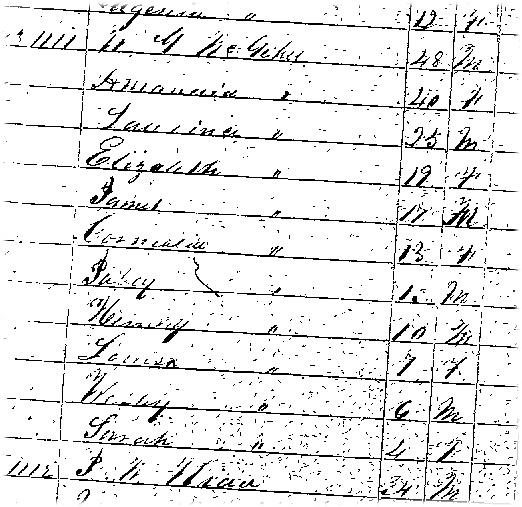 " 12 F
1111 W G McGehee 48 M
Amanda " 40 F
Laurence " 25 M
Elizabeth " 19 F
James " 17 M
Cornelia " 13 F
" M
Henry " 10 M
Louisa " 7 F
Wesley " 6 M
Sarah " 4 F
1112 34 M